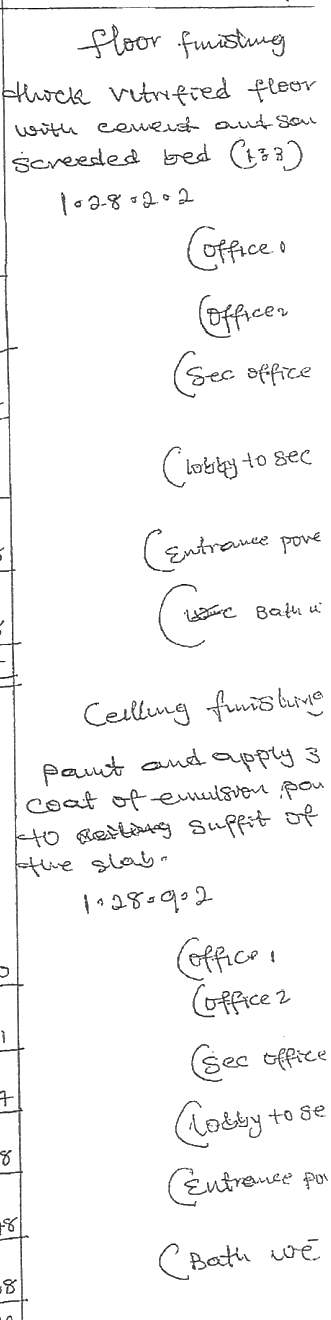 floor finishing
thick vitrified floor
with cement and san
screeded bed (1:3)
1.28.2.2
(Office 1
(Office 2
(Sec office
(lobby to sec
(Entrance
(Bath
Ceiling finishing
paint and apply 3
coat of emulsion
to suffit of
the slab.
1.28.9.2
(office 1
(office 2
(Sec office
(lobby to se
(Entrance
(Bath